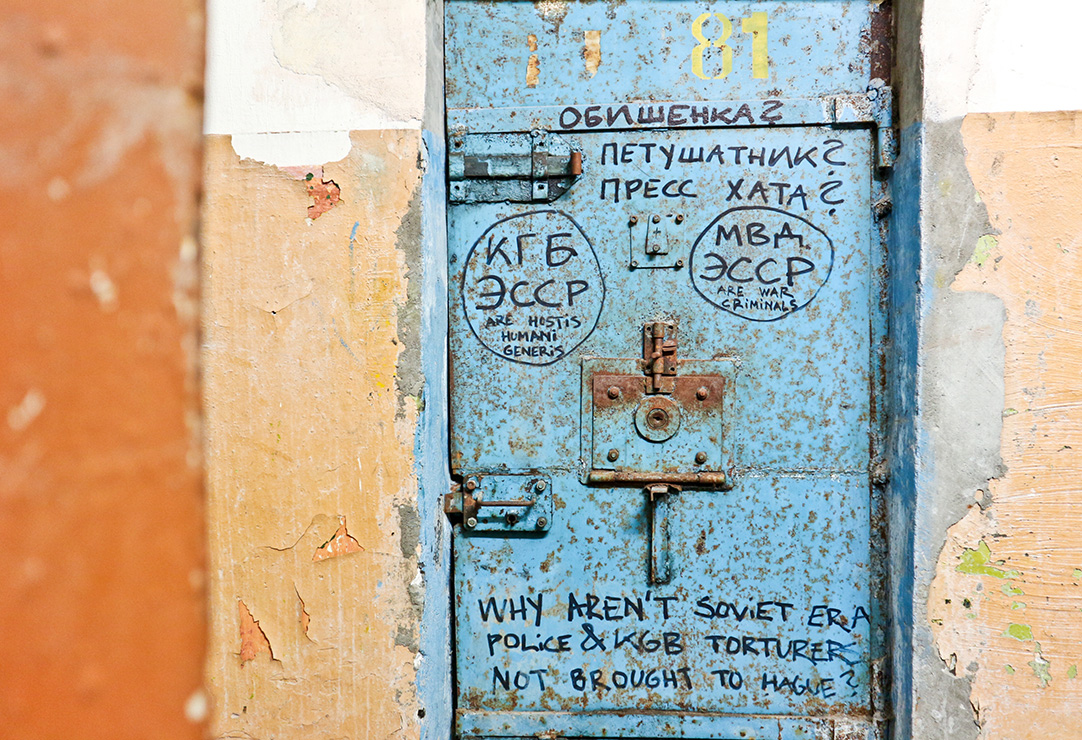 81
ОБИШЕНКА?
ПЕТУШАТНИК?
ПРЕСС ХАТА?
КГБ
ЭССР
ARE HOSTIS
HUMANI
GENERIS
МВД
ЭССР
ARE WAR
CRIMINALS
WHY AREN'T SOVIET ERA
POLICE & KGB TORTURERS
NOT BROUGHT TO HAGUE?